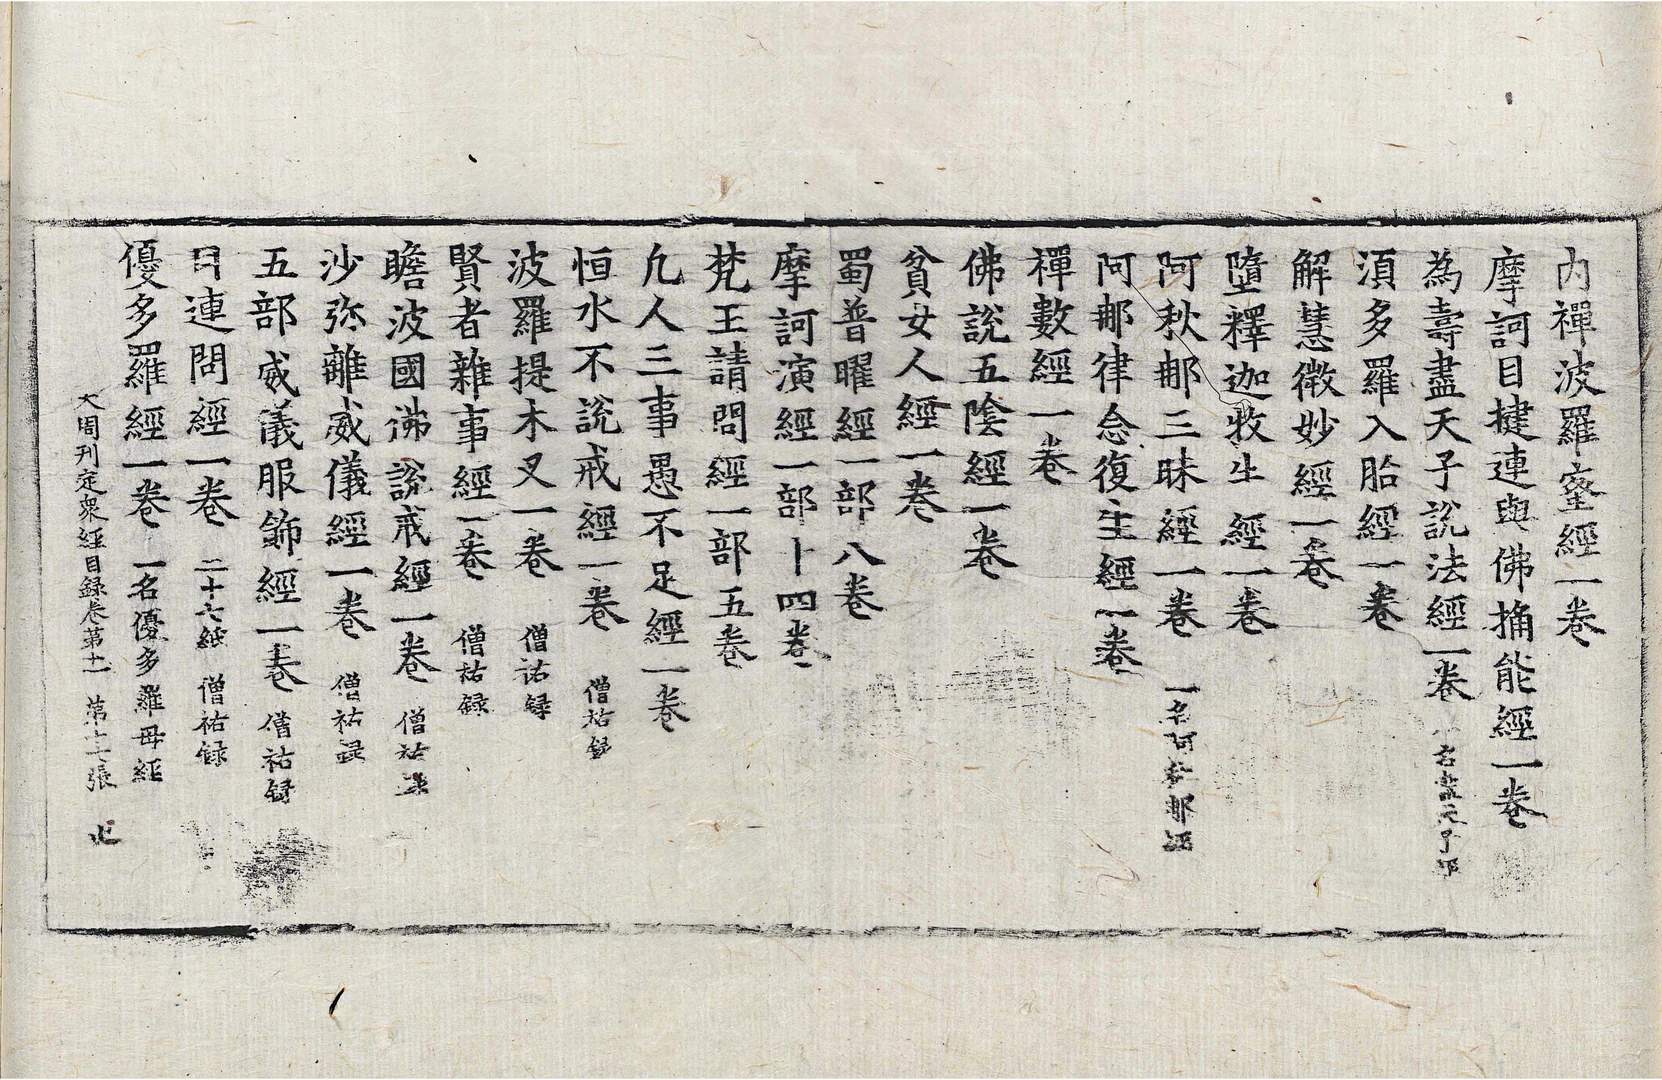 内禪波羅蜜經一卷
摩訶目揵連與佛捔能經一卷
為壽盡天子說法經一卷
須多羅入胎經一卷
解慧微妙經一卷
墮釋迦牧牛經一卷
阿秋那三昧經一卷 一名阿
阿那律念復生經一卷
禪數經一卷
佛說五陰經一卷
貧女人經一卷
蜀普曜經一部八卷
摩訶演經一部十四卷
梵王請問經一部五卷
凢人三事愚不足經一卷
恒水不說戒經一卷 僧祐録
波羅提木叉一卷 僧祐録
賢者雜事經一卷 僧祐録
瞻波國佛說戒經一卷 僧祐録
沙弥離威儀經一卷 僧祐録
五部威儀服飾經一卷 僧祐録
目連問經一卷 二十六紙 僧祐録
優多羅經一卷 一名優多羅母經
大周刊定衆經目録卷第十一 第十二張